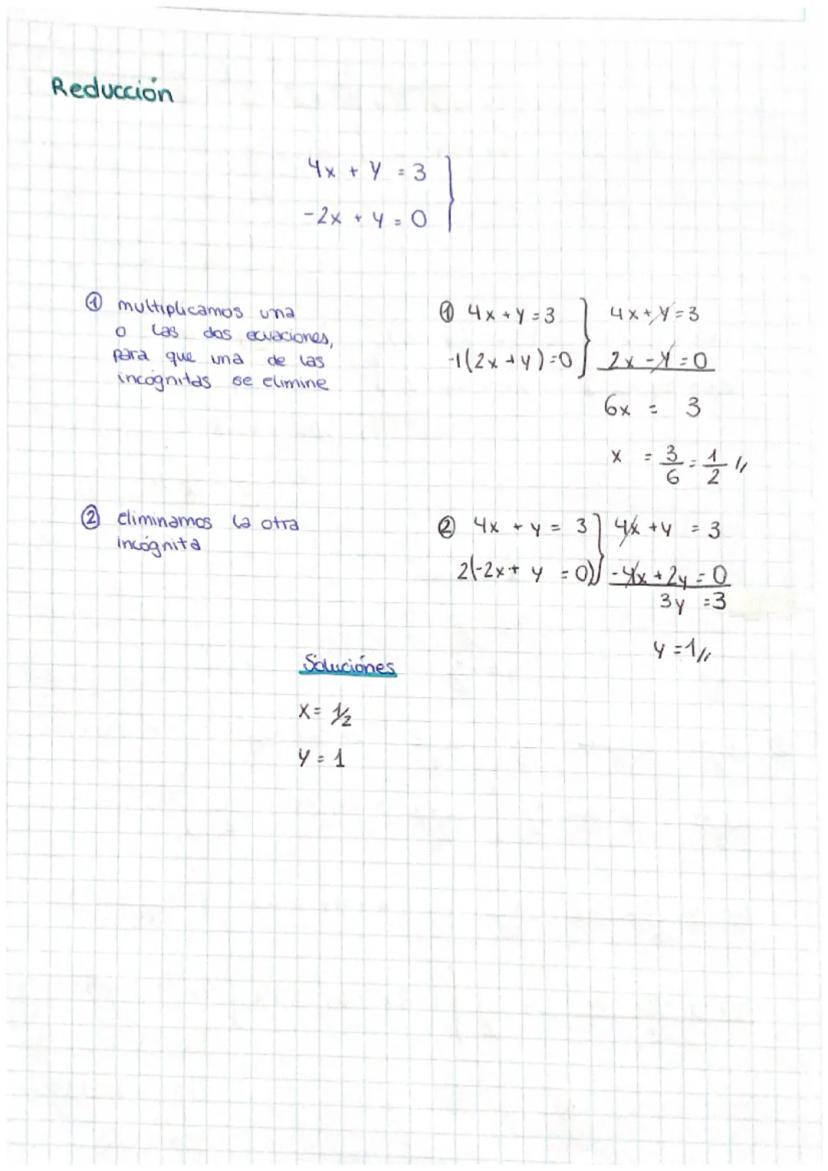 Reducción
4x + y = 3
-2x + y = 0
① multiplicamos una
o las dos ecuaciones,
para que una de las
incógnitas se elimine
① 4x + y = 3
-1(2x + y) = 0
4x + y = 3
2x - y = 0
6x = 3
x = 3/6 = 1/2 //
② eliminamos la otra
incógnita
② 4x + y = 3
2(-2x + y = 0)
4x + y = 3
-4x + 2y = 0
3y = 3
y = 1 //
Soluciónes
x = 1/2
y = 1